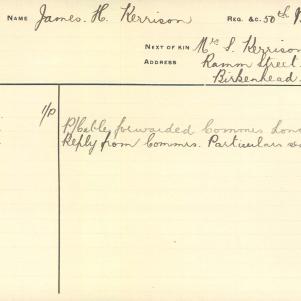 NAME James. H. Kerrison REG. &C. 50th
NEXT OF KIN Mrs S. Kerrison
ADDRESS Ramm Street
Birkenhead.
1/P P/Cable forwarded Commrs
Reply from Commrs. Particulars